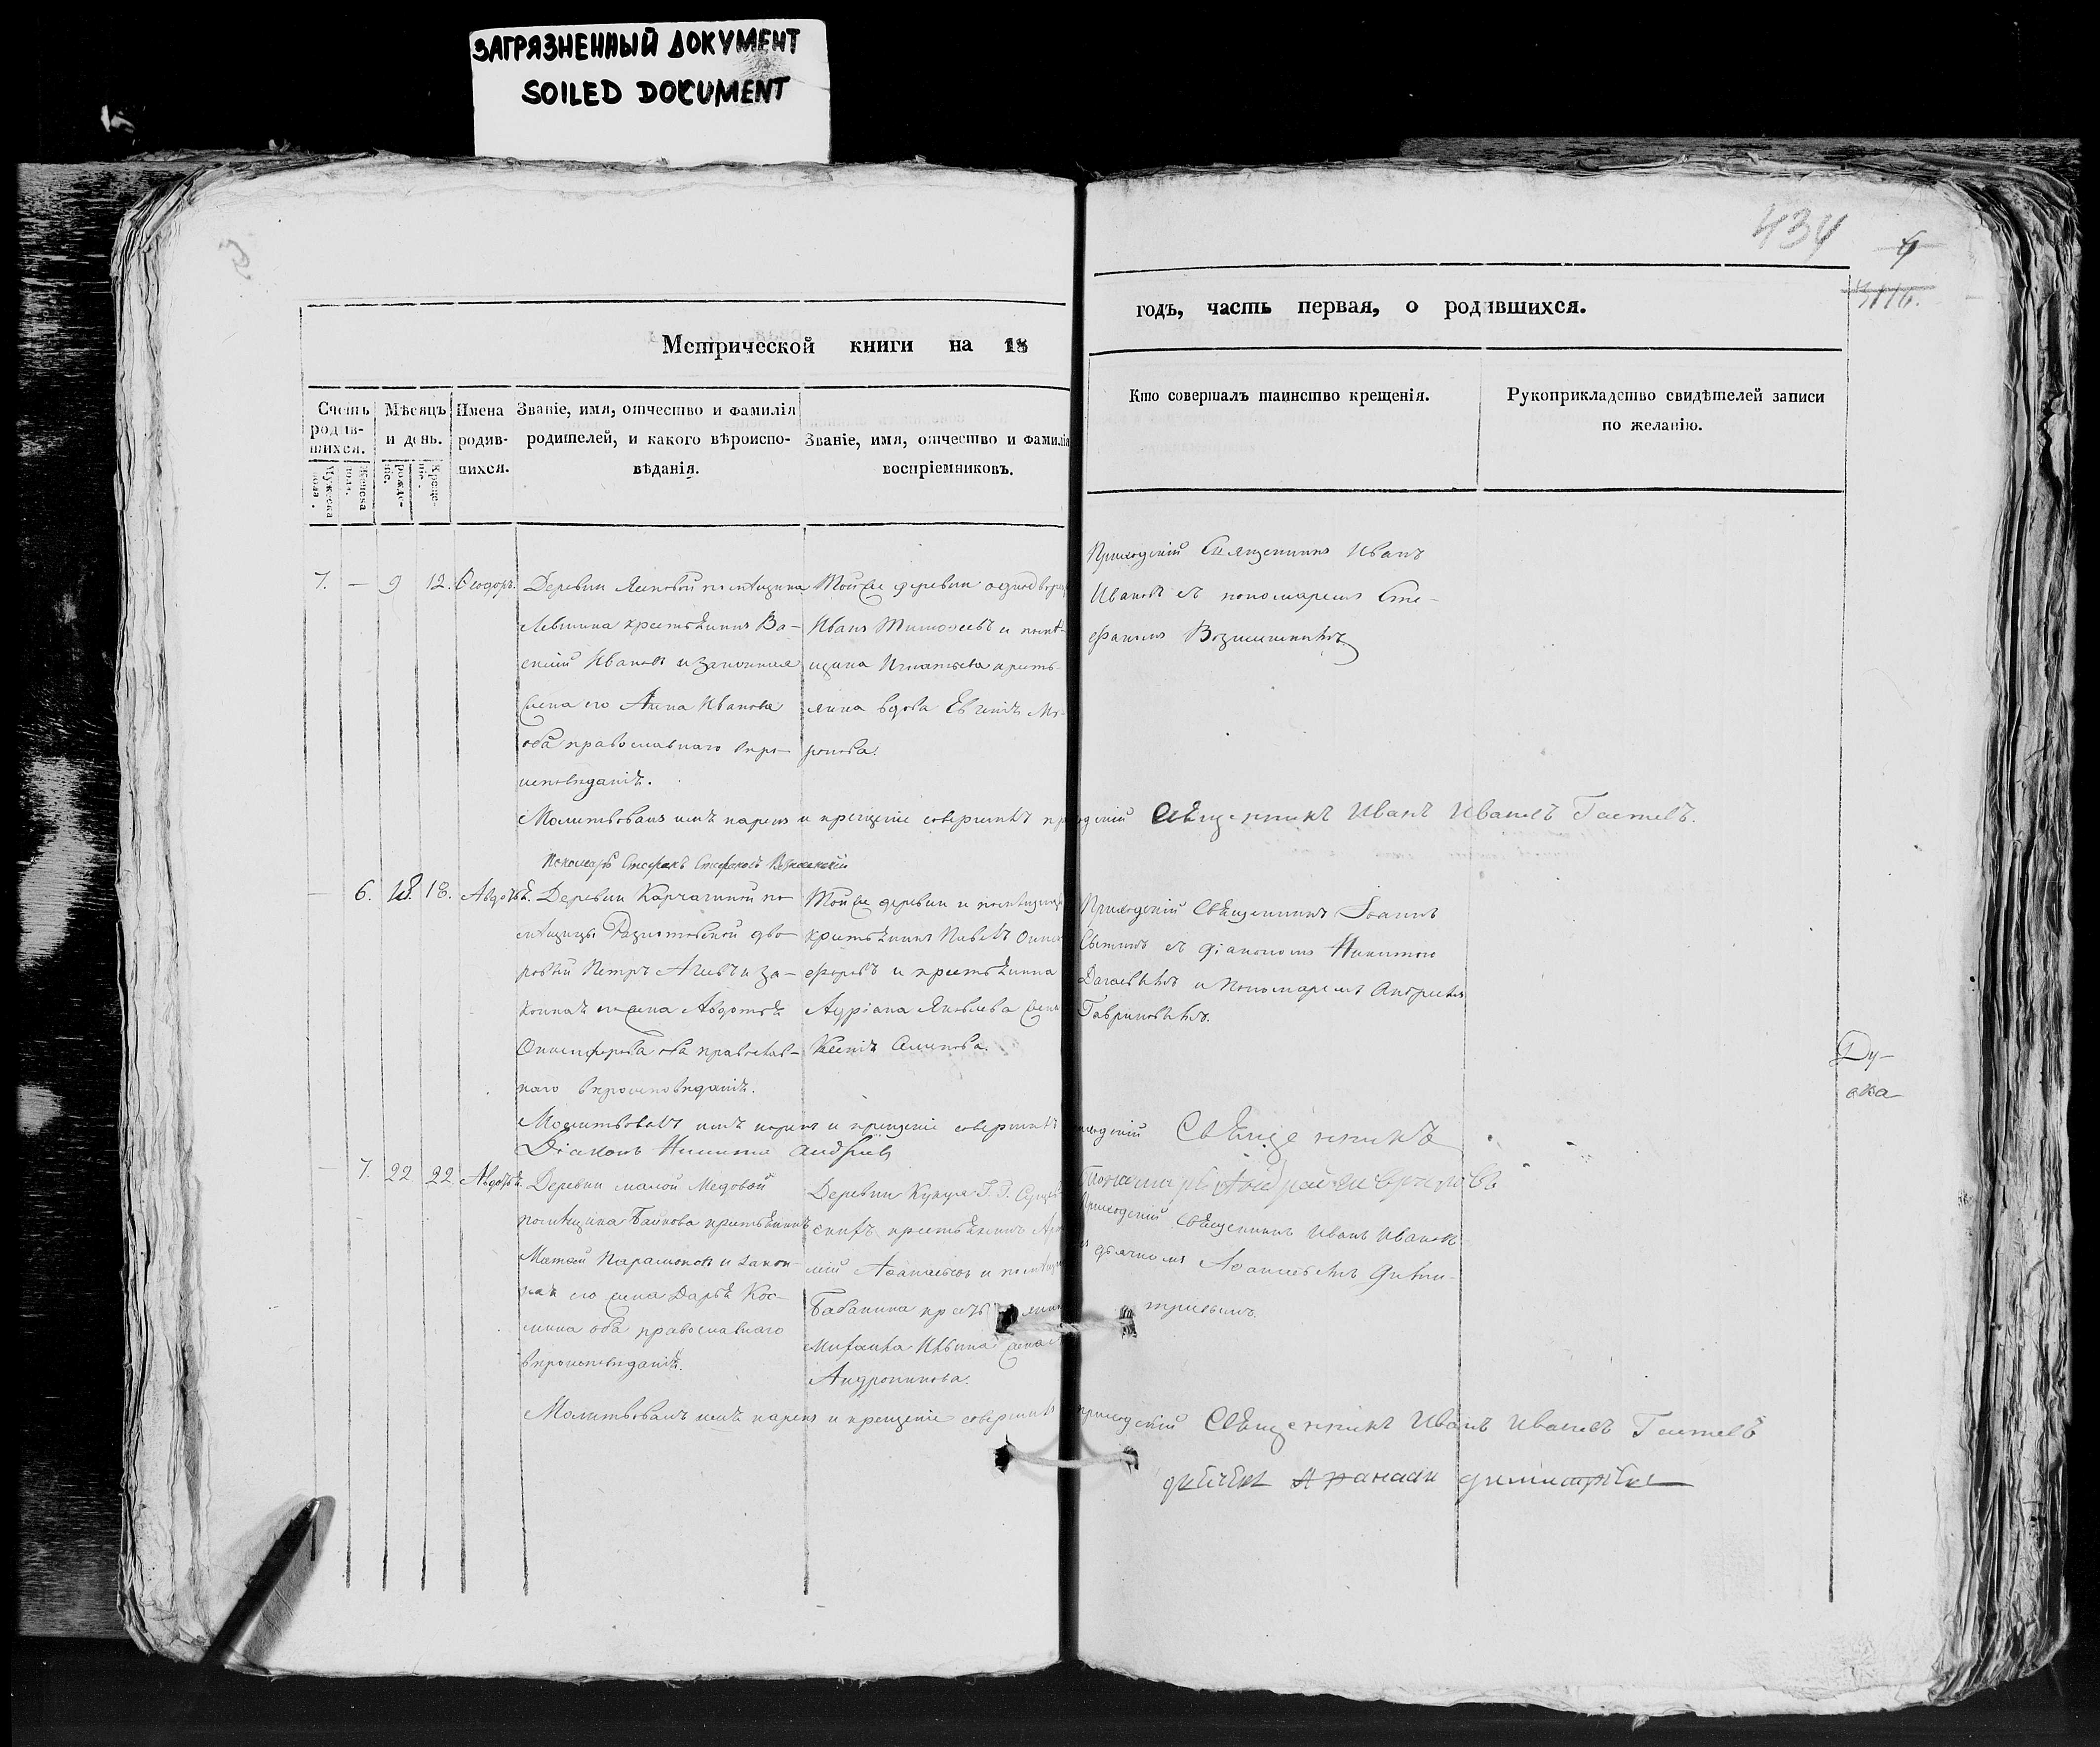 ЗАГРЯЗНЕННЫЙ ДОКУМЕНТ
SOILED DOCUMENT
434
Метрической книги на 18
годъ, часть первая, о родившихся.
Счетъ родив-шихся.
Мужеска пола.
Женска пола.
Мѣсяцъ и день.
Рожде-нія.
Креще-нія.
Имена родив-шихся.
Званіе, имя, отчество и фамилія
родителей, и какого вѣроиспо-
вѣданія.
Званіе, имя, отчество и фамилія
воспріемниковъ.
Кто совершалъ таинство крещенія.
Рукоприкладство свидѣтелей записи
по желанію.
7. — 9 12. Ѳеодоръ.
Деревни помѣщика
Левшина крестьянинъ Ва-
силій Ивановъ и законная
жена его Анна Иванова
оба православнаго вѣро-
исповѣданія.
Той же деревни
Иванъ Тимоѳеевъ и помѣ-
щика Игнатьева кресть-
янка вдова Евгенія Ми-
ронова.
Приходскій Священникъ Иванъ
Ивановъ съ пономаремъ Сте-
фаномъ
Молитвовалъ имя нарекъ и крещеніе совершилъ приходскій Священникъ Иванъ Ивановъ Гастевъ.
Пономарь Стефанъ Стефановъ
— 6. 18. 18. Авдотья.
Деревни Карчагиной по-
мѣщицы дво-
ровый Петръ и за-
конная жена Авдотья
Онисифорова оба православ-
наго вѣроисповѣданія.
Той же деревни и помѣщицы
крестьянинъ Онис
форовъ и крестьянина
Адріана Яковлева жена
Ксенія Семенова.
Приходскій Священникъ Іоаннъ
Сытинъ съ діакономъ Никитою
и Пономаремъ Андреемъ
Гавриловымъ.
Ду-
ка
Молитвовалъ имя нарекъ и крещеніе совершилъ приходскій Священникъ
Діаконъ Никита Андреевъ
Пономарь Андрей Гавриловъ
— 7. 22. 22. Авдотья.
Деревни малой Медовой
помѣщика Байкова крестьянинъ
Матвей Парамоновъ и закон-
ная его жена Дарья Кос-
мина оба православнаго
вѣроисповѣданія.
Деревни Кукуя Г. Г.
скихъ крестьянинъ
Аѳанасьевъ и помѣщика
Бабанина крестьянина
Михаила Ильина жена
Андроникова.
Приходскій Священникъ Иванъ Ивановъ
съ дьячкомъ Аѳанасіемъ Дими-
тріевымъ.
Молитвовалъ имя нарекъ и крещеніе совершилъ приходскій Священникъ Иванъ Ивановъ Гастевъ